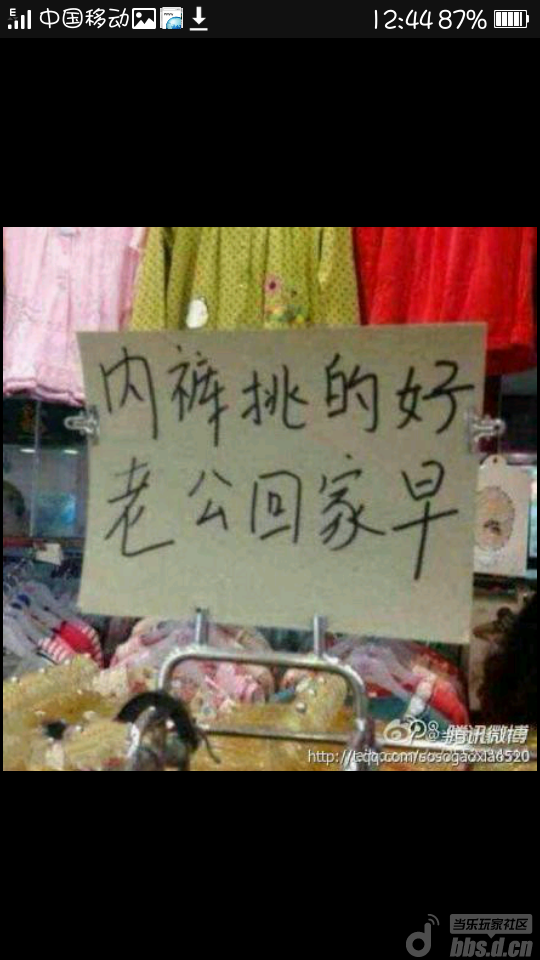 中国移动
12:44 87%
内裤挑的好
老公回家早
腾讯微博
当乐玩家社区
bbs.d.cn